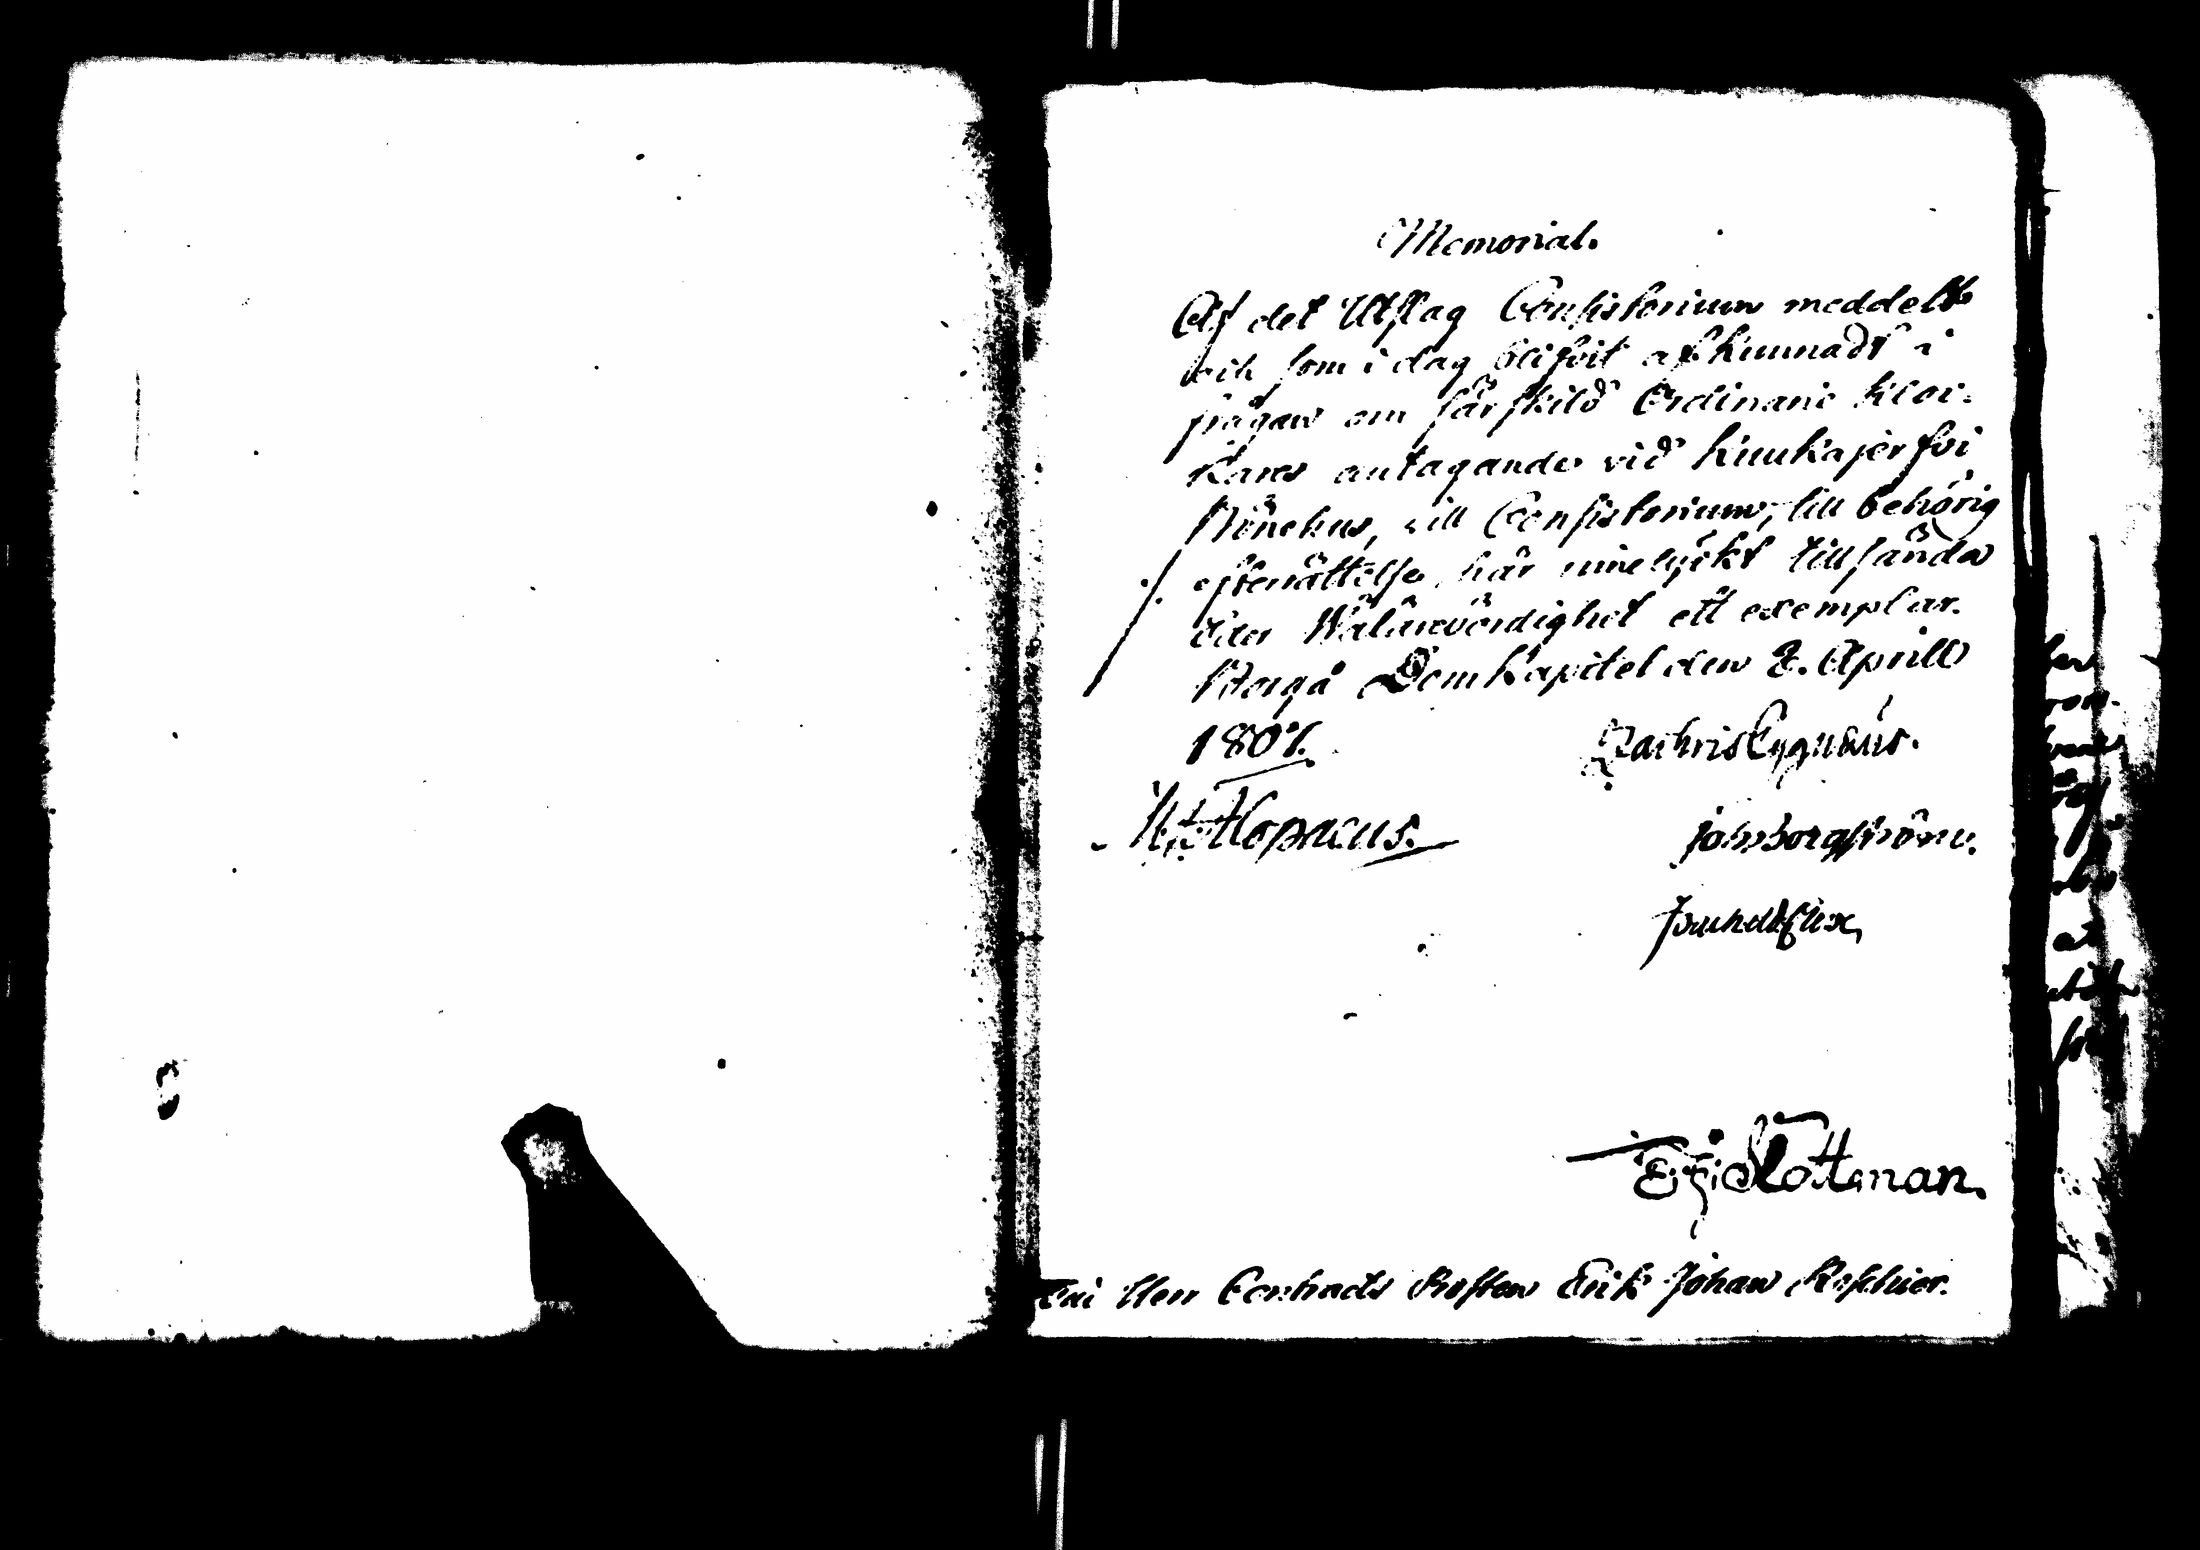 Memorial.
Af det Utslag Consistorium meddelt
och som i dag blifvit afkunnadt i
frågan om särskild Ordinarie kloc-
kares antagande vid Kuukajerfvi
Bönehus, vill Consistorium, till behörig
efterrättelse, här innelyckt tillsända
Eder Wälärevördighet ett exemplar.
Borgå DomKapitel den 8. Aprill
1807.
Zachris Cygnæus.
Hopaeus.
Joh. Borgström.
E. J. Kottman.
Till Herr Contracts Prosten Erik Johan Roschier.